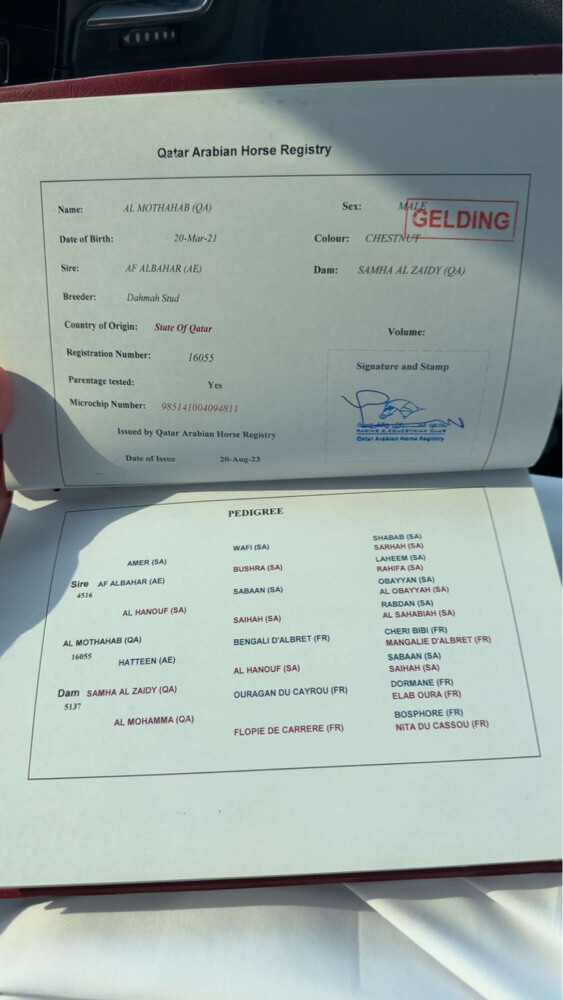 Qatar Arabian Horse Registry
Name: AL MOTHAHAB (QA) Sex: MALE
GELDING
Date of Birth: 20-Mar-21 Colour: CHESTNUT
Sire: AF ALBAHAR (AE) Dam: SAMHA AL ZAIDY (QA)
Breeder: Dahmah Stud
Country of Origin: State Of Qatar Volume:
Registration Number: 16055 Signature and Stamp
Parentage tested: Yes
Microchip Number: 985141004094811
RACING & EQUESTRIAN CLUB
Qatar Arabian Horse Registry
Issued by Qatar Arabian Horse Registry
Date of Issue 20-Aug-23
PEDIGREE
SHABAB (SA)
WAFI (SA) SARHAH (SA)
AMER (SA) LAHEEM (SA)
BUSHRA (SA) RAHIFA (SA)
Sire AF ALBAHAR (AE) OBAYYAN (SA)
4516 SABAAN (SA) AL OBAYYAH (SA)
AL HANOUF (SA) RABDAN (SA)
SAIHAH (SA) AL SAHABIAH (SA)
AL MOTHAHAB (QA) CHERI BIBI (FR)
16055 BENGALI D'ALBRET (FR) MANGALIE D'ALBRET (FR)
HATTEEN (AE) SABAAN (SA)
AL HANOUF (SA) SAIHAH (SA)
Dam SAMHA AL ZAIDY (QA) DORMANE (FR)
5137 OURAGAN DU CAYROU (FR) ELAB OURA (FR)
AL MOHAMMA (QA) BOSPHORE (FR)
FLOPIE DE CARRERE (FR) NITA DU CASSOU (FR)